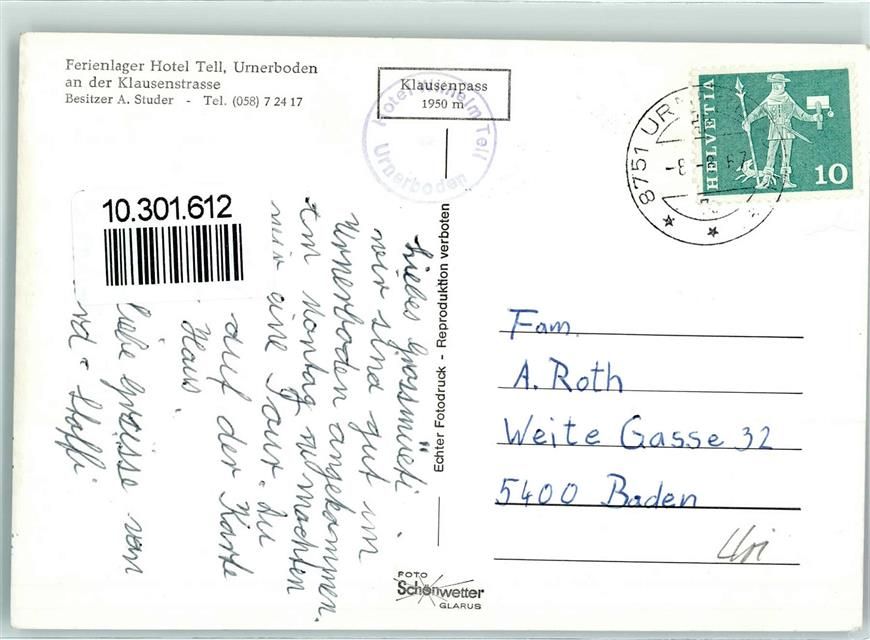 Ferienlager Hotel Tell, Urnerboden
an der Klausenstrasse
Besitzer A. Studer - Tel. (058) 7 24 17
Klausenpass
1950 m
Hotel Wilhelm Tell
Urnerboden
8751 UR
HELVETIA
10
10.301.612
Liebes Grossmüeti.
wir sind gut im
Urnerboden angekommen.
Am Montag machten
wir eine Tour.
auf der Karte
Haus.
liebe Grüsse von
Steffi
Echter Fotodruck - Reproduktion verboten
Fam.
A. Roth
Weite Gasse 32
5400 Baden
Uri
FOTO
Schönwetter
GLARUS